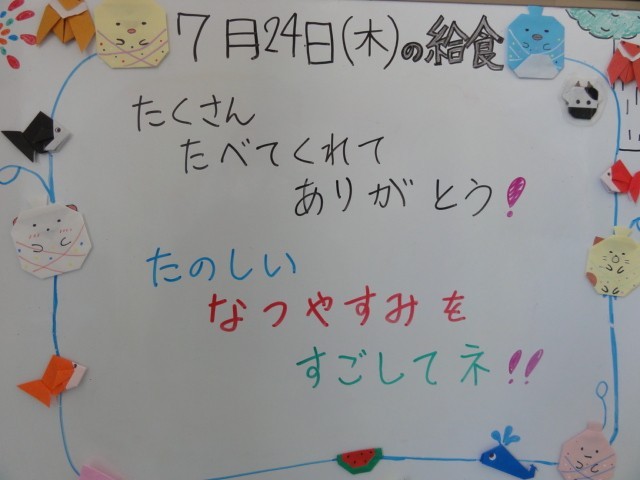 7月24日(木)の給食
たくさん
たべてくれて
ありがとう!
たのしい
なつやすみを
すごしてネ!!